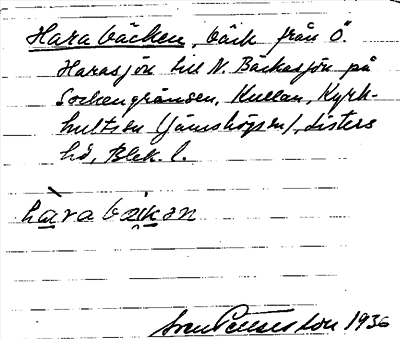 Harabäcken, bäck från Ö.
Harasjön till N. Bäckasjön på
Sockengränsen, Kullan, Kyrk-
hultsn (Jämshögsn), Listers
hd, Blek. l.
hàrabäkən
Sven Pettersson 1936